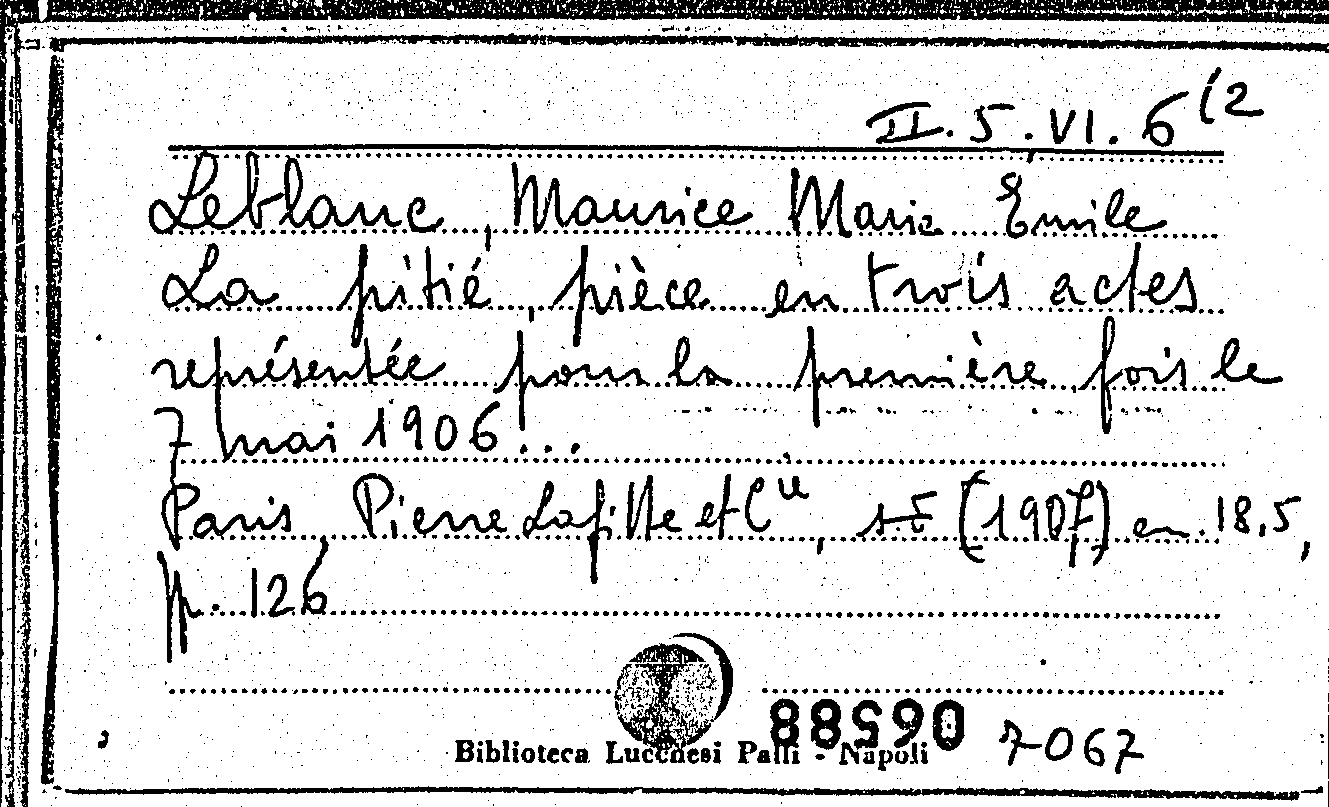 II. 5. VI. 6 (2
Leblanc, Maurice Marie Emile
La pitié, pièce en trois actes
représentée pour la première fois le
7 mai 1906...
Paris, Pierre Lafitte et Cie, [1907] cm. 18,5,
pp. 126
06588
Biblioteca Lucchesi Palli - Napoli 7067